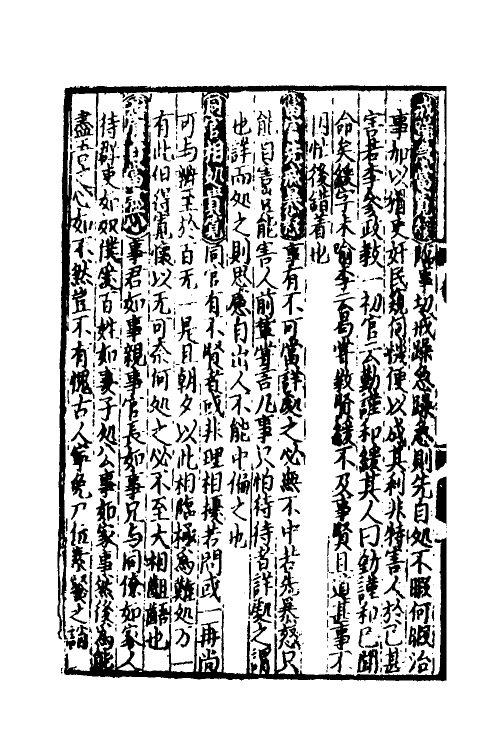 戒躁急當寬緩 臨事切戒躁急躁急則先自処不暇何暇治
事加以猾吏奸民窺伺機便以成其利非特害人於己甚
害若李参政教一初官云勤謹和緩其人曰勤謹和已聞
命矣緩字未喻李云曷嘗教賢緩不及事賢且道甚事不
因忙後錯着也
當官先戒暴怒 事有不可當詳処之必無不中若先暴怒只
能自害豈能害人前輩嘗言凡事只怕待待者詳処之謂
也詳而処之則思慮自出人不能中傷之也
同官相処貴寛 同官有不賢者或非理相擾若間或一再尚
可与辨至於百无一是且朝夕以此相臨極為難処力一
有此伯得寛懐以无可奈何処之必不至大相齟齬也
事君如事親事官長如事兄与同僚如家人
待郡吏如奴僕愛百姓如妻子処公事如家事然後為能
盡吾之心如不然豈不有愧古人